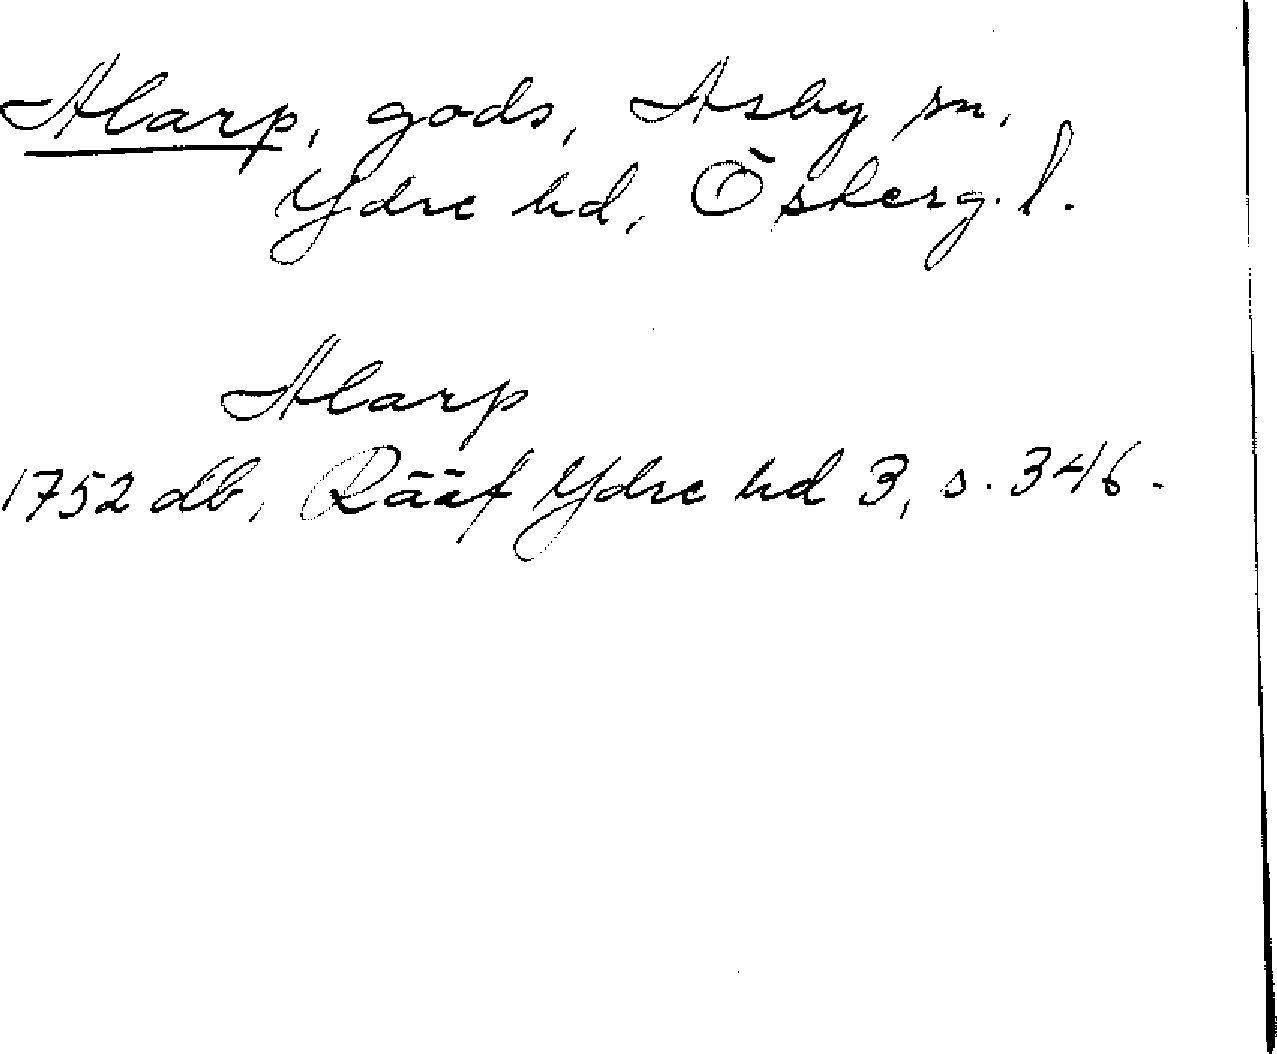 Alarp, gods, Asby sn,
Ydre hd, Österg. l.
Alarp
1752 db, Rääf Ydre hd 3, s. 346.